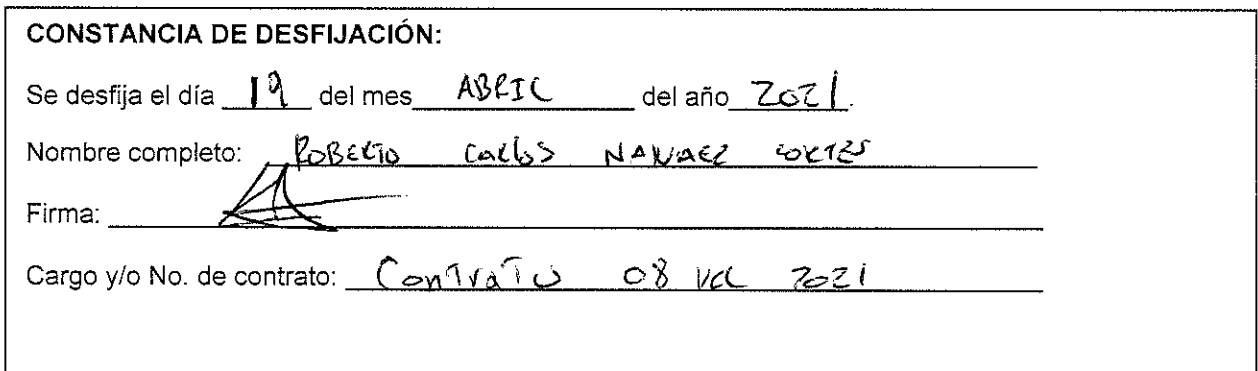 CONSTANCIA DE DESFIJACIÓN:
Se desfija el día 19 del mes ABRIL del año 2021.
Nombre completo: ROBERTO CARLOS NARVAEZ CORTES
Firma:
Cargo y/o No. de contrato: Contrato 08 del 2021